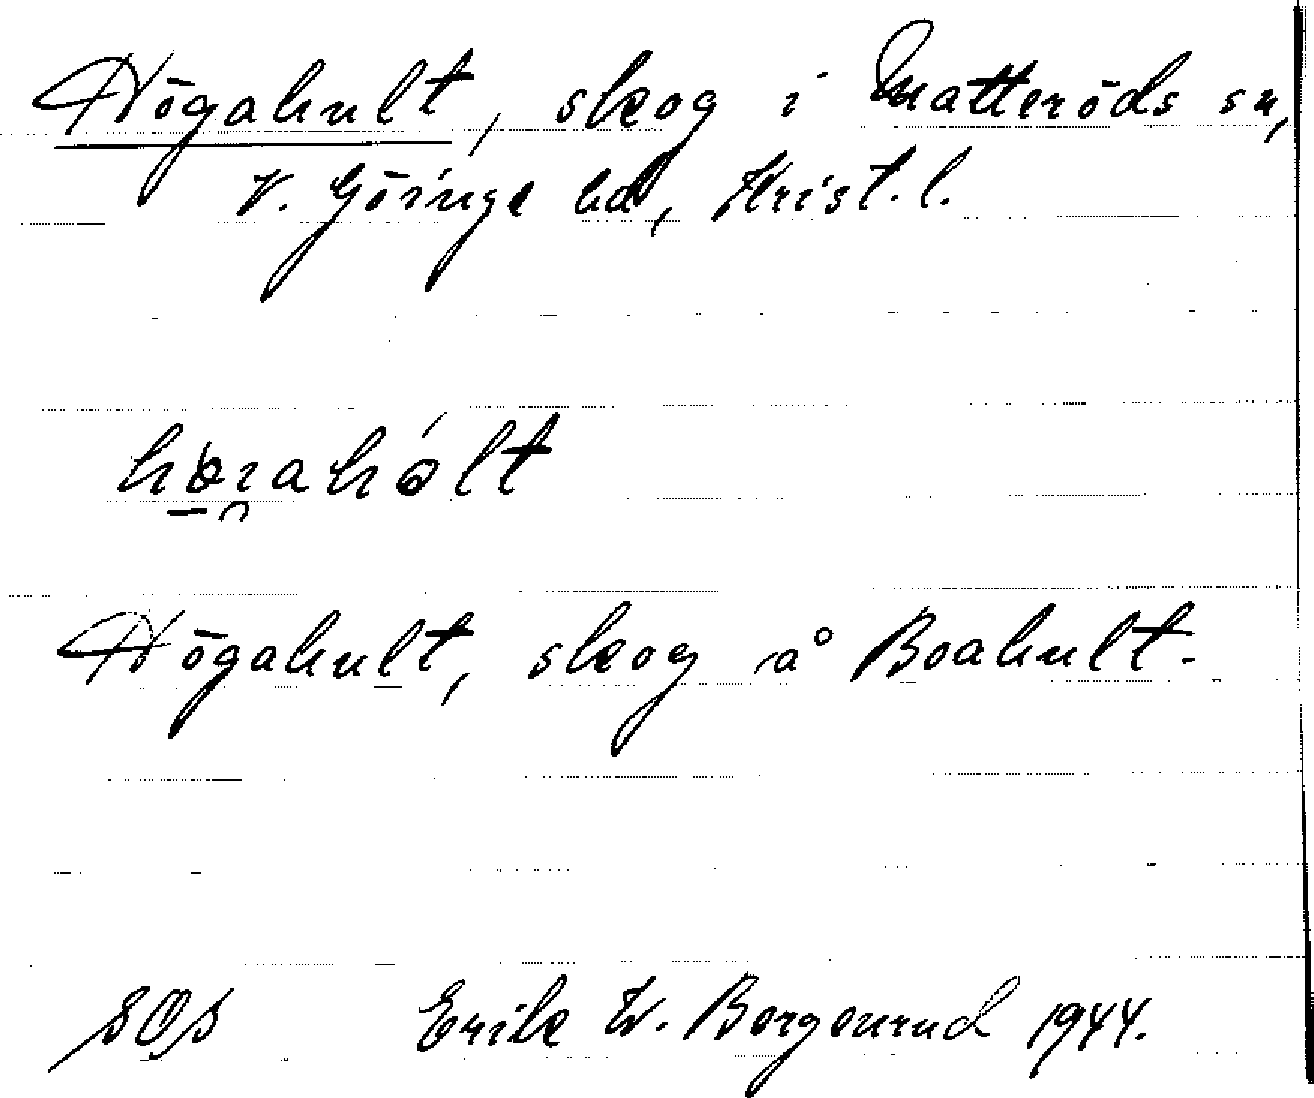 Högahult, skog i Matteröds sn,
V. Göinge hd, Krist. l.
Högahult, skog å Boahult.
SOS Erik W. Borgenrud 1944.